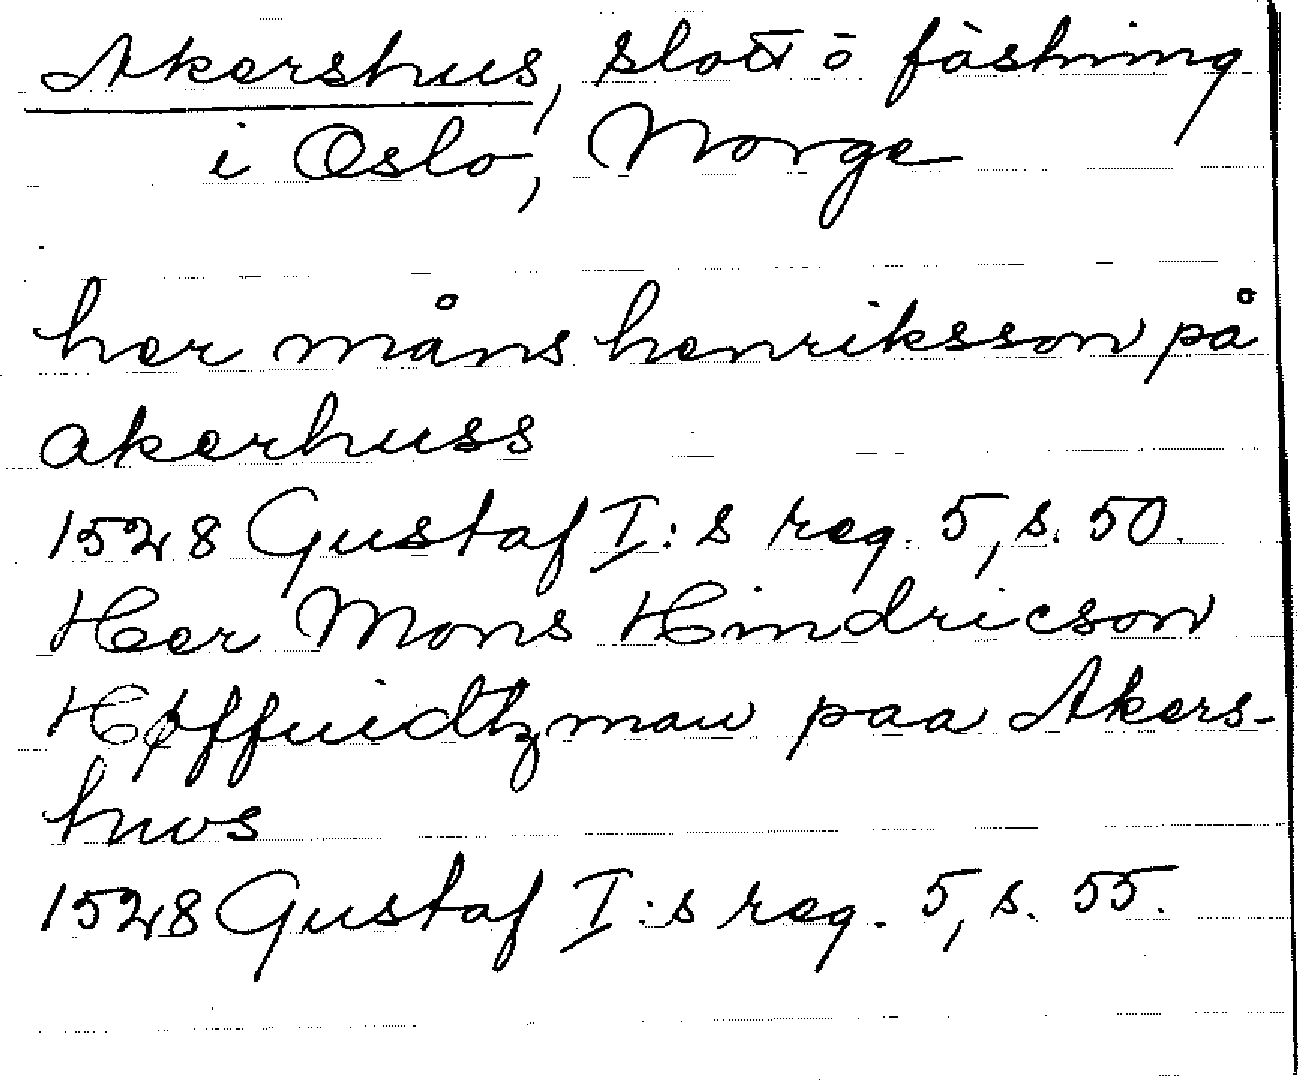 Akershus, slott ō fästning
i Oslo, Norge
her måns henriksson på
akerhuss
1528 Gustaf I:s reg. 5, s. 50.
Her Mons Hindricson
Høffuidtzman paa Akers-
hws
1528 Gustaf I:s reg. 5, s. 55.